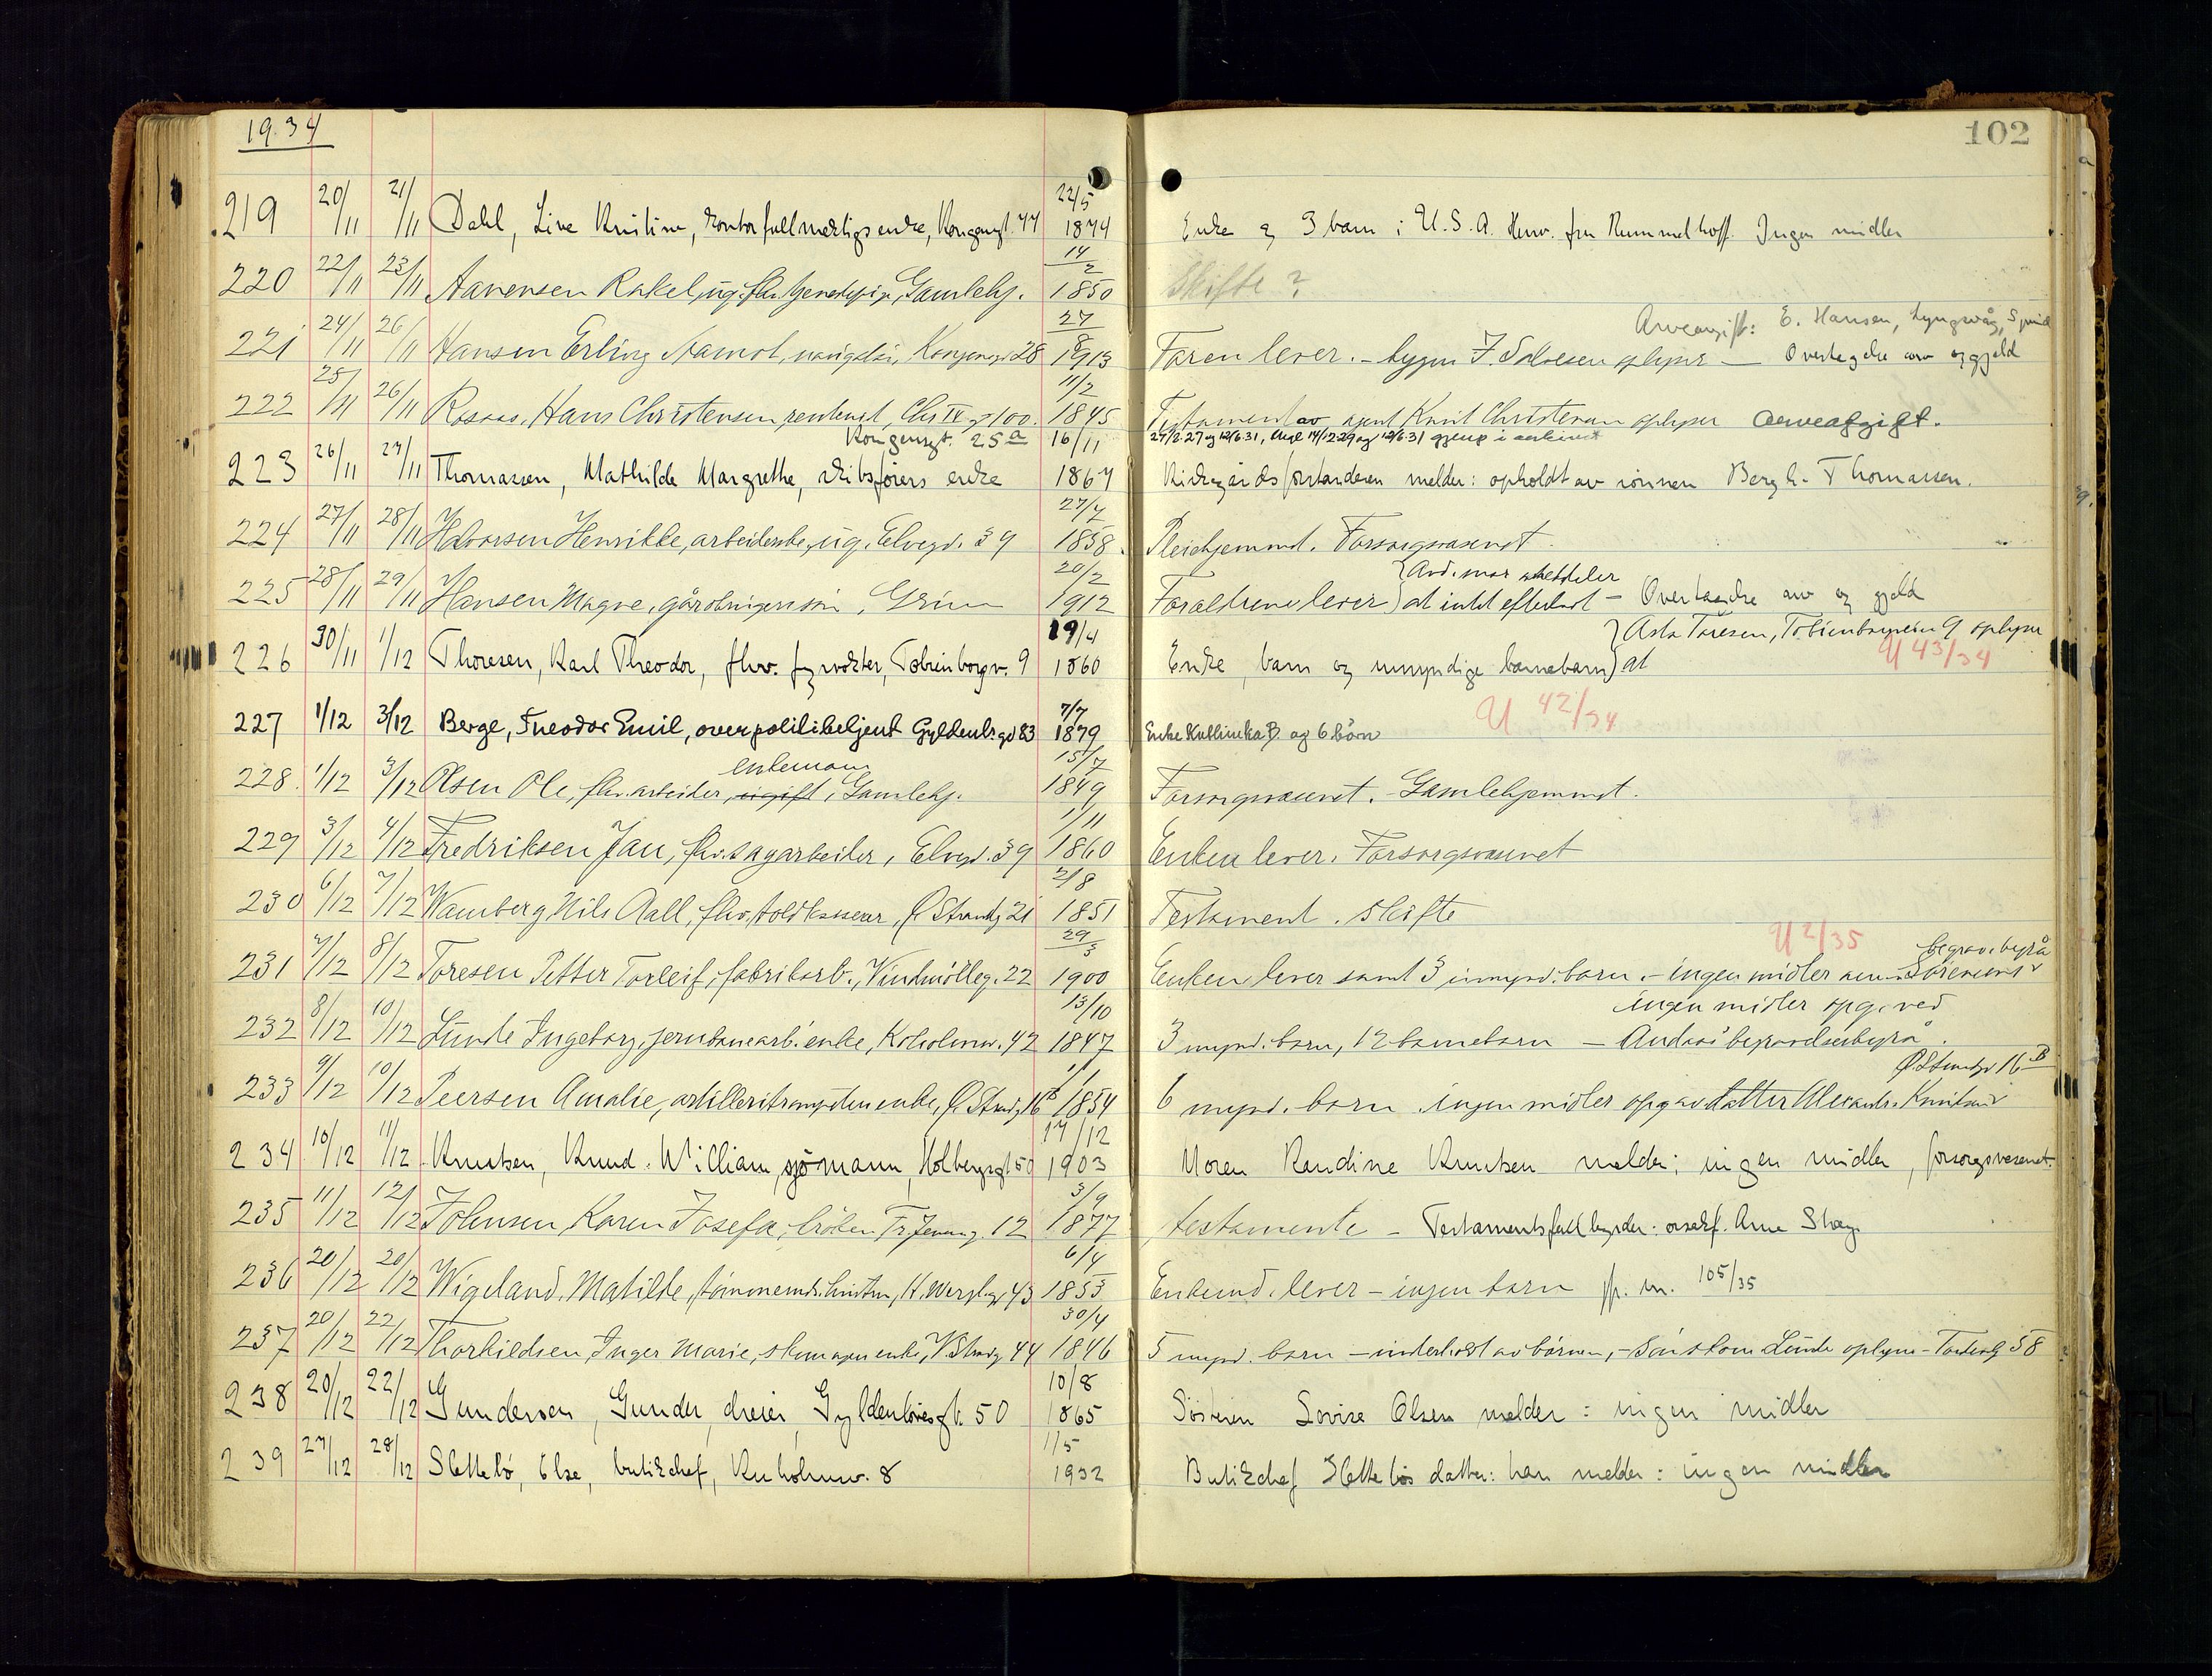 1934
102
219 20/11 21/11 Dahl, Live Kristine, kontorfullmektigs enke, Kongensgt. 44 22/5 1874 Enke og 3 barn i U.S.A. Henv. fru Hummelhoff. Ingen midler
220 22/11 23/11 Aanensen Rakel, ug. fhv. Gamlehj. 14/2 1850 Skifte?
Arveavgift: E. Hansen, Lyngsvåg, Spind
221 24/11 26/11 Hansen Erling Aamot, Kongensg 28 27/8 1913 Faren lever. - J. Salvesen oplyser — Overtagelse arv og gjeld
222 25/11 26/11 Rosaas, Hans Christensen, Chr IV g 100. 11/2 1845 Testament av agent Knut Christensen oplyser arveavgift.
27/2 27 og 12/6.31, 14/12 29 og 12/6 31 i
Kongensgt. 25a
223 26/11 27/11 Thomassen, Mathilde Margrethe, skibsførers enke 16/11 1867 Kirkegårdsforstanderen melder: opholdt av sønnen Bergh. Thomassen.
224 27/11 28/11 Halvorsen Henrikke, arbeiderske, ug. Elvegd. 39 27/7 1858. Pleiehjemmet. Forsorgsvæsenet
225 28/11 29/11 Hansen Magne, gårdbrugersøn, Grim 20/2 1912 Forældrene lever at intet efterlatt - Overtagelse arv og gjeld
Asta Toresen, Tobienborgvein 9 oplyser
226 30/11 1/12 Thoresen, Karl Theodor, fhv. fyrvokter, Tobienborgv. 9 19/4 1860 Enke, barn og umyndige barnebarn at
U 43/34
227 1/12 3/12 Berge, Theodor Emil, overpolitibetjent Gyldenl.gd 83 7/7 1879 Enke Kathinka B. og 6 børn
U 42/34
enkemann
228. 1/12 3/12 Olsen Ole, fhv. arbeider, ugift, Gamlehj. 15/7 1849 Forsorgsvæsenet. - Gamlehjemmet.
229 3/12 4/12 Fredriksen Jan, fhv. sagarbeider, Elvegd. 39 1/11 1860 Enken lever. Forsorgsvæsenet
230 6/12 7/12 Wamberg Nils Aall, fhv. toldkasserer, Ø Strandg 21 2/8 1851 Testament. Skifte
U 2/35
begrav. byrå
231 7/12 8/12 Toresen Petter Torleif, fabrikarb., Vindmølleg. 22 29/3 1900 Enken lever samt 3 umynd. barn - ingen midler Sørensens
ingen midler opg. ved
232 8/12 10/12 Lunde Ingeborg, jernbanearb. enke, Koholmv. 42 13/10 1847 3 mynd. barn, 12 barnebarn — Andås' begravelsesbyrå.
Ø Strandg 16 B
233 9/12 10/12 Peersen Amalie, enke, Ø Strandg 16 B 1/1 1854 6 mynd. barn. ingen midler opg av datter Alexandr. Knudsen
234 10/12 11/12 Knutsen, Knud William, sjømann, Holbergsgt 50 17/12 1903 Moren Randine Knutsen melder; ingen midler, forsorgsvesenet.
235 11/12 12/12 Johnsen Karen Josefa, frøken Fr. 12 3/9 1877 testamente - Testamentsfullbyrder: o.r.sakf. Arne Skaug.
236 20/12 20/12 Wigeland Matilde, tømmermds hustru, H. Wergl.g 43 6/4 1853 Enkemd. lever - ingen barn 105/35
237 20/12 22/12 Thorkildsen Inger Marie, skomagerenke, V. Strandg 44 30/4 1846 5 mynd. barn - underholdt av børnene, - Lunde oplyser - 58
238 20/12 22/12 Gundersen, Gunder, dreier, Gyldenløvesgt. 50 10/8 1865 Søsteren Lovise Olsen melder: ingen midler
239 27/12 28/12 Slettebø, Else, butikchef, Kuholmsv. 8 1/5 1932 Butikchef Slettebøs datter: han melder: ingen midler